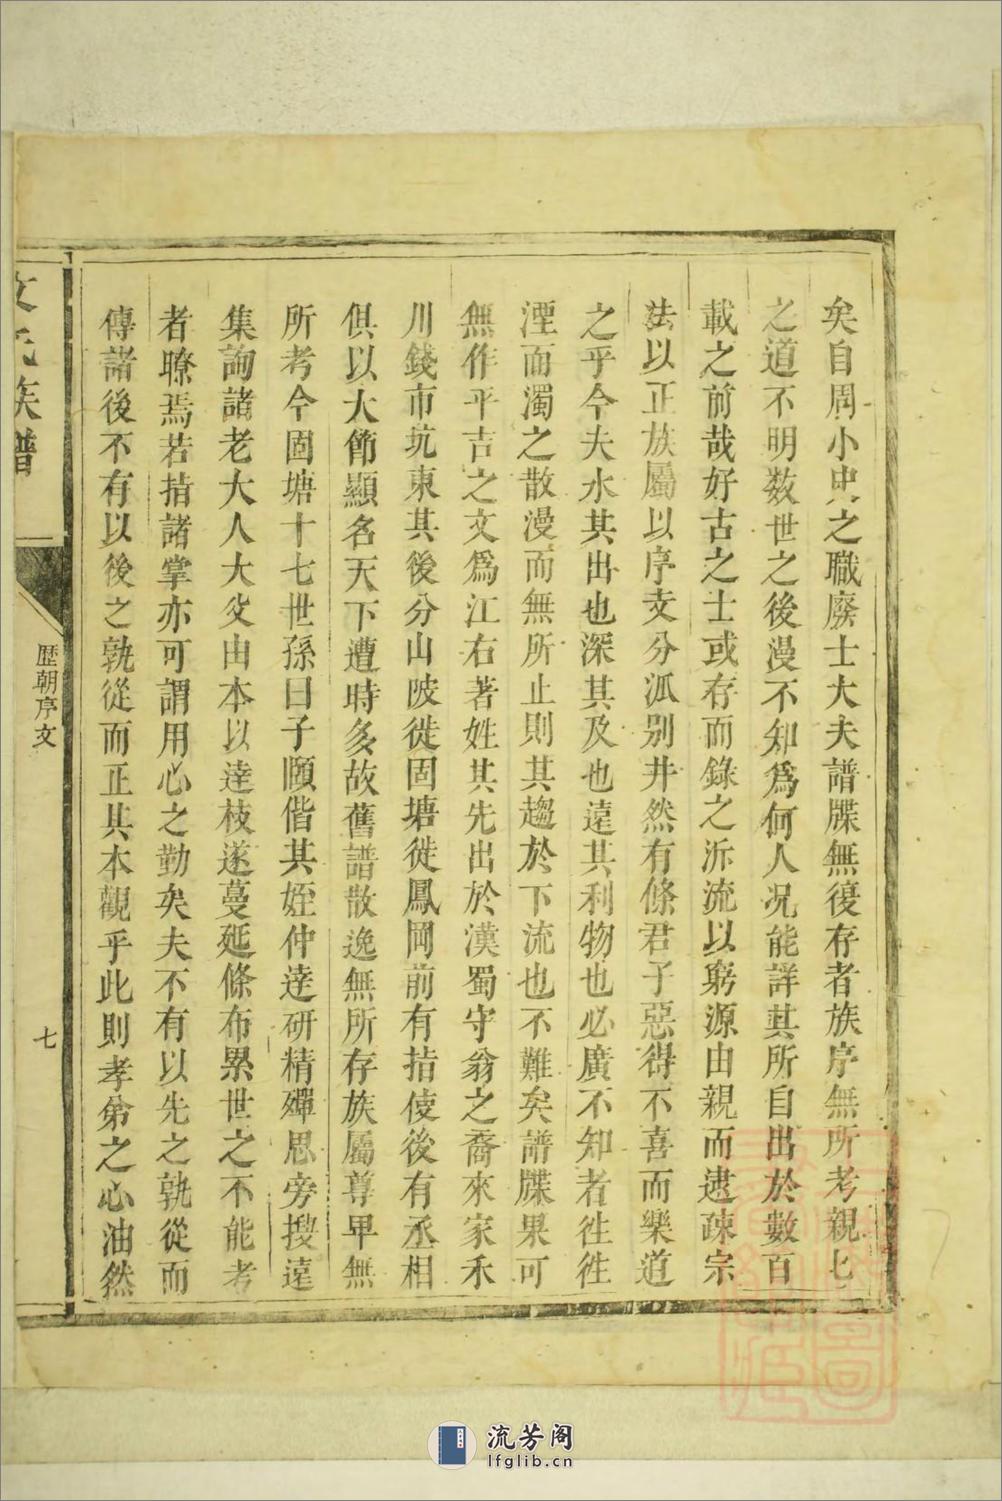 矣自周小史之職廢士大夫譜牒無復存者族序無所考親七
之道不明数世之後漫不知為何人况能詳其所自出於數百
載之前哉好古之士或存而錄之泝流以窮源由親而逮疎宗
法以正族屬以序支分派别井然有條君子惡得不喜而樂道
之乎今夫水其出也深其及也遠其利物也必廣不知者徃徃
湮而濁之散漫而無所止則其趨於下流也不難矣譜牒果可
無作乎吉之文爲江右著姓其先出於漢蜀守翁之裔來家禾
川錢市坑東其後分山陂徙固塘徙鳳岡前有拮使後有丞相
俱以大節顯名天下遭時多故舊譜散逸無所存族屬尊早無
所考今固塘十七世孫曰子頤偕其姪仲逹研精殫思旁搜遠
集詢諸老大人大父由本以逹枝遂蔓延條布累世之不能考
者瞭焉若指諸掌亦可謂用心之勤矣夫不有以先之孰從而
傳諸後不有以後之孰從而正其本觀乎此則孝弟之心油然
文氏族譜
歷朝序文
七
流芳阁
lfglib.cn